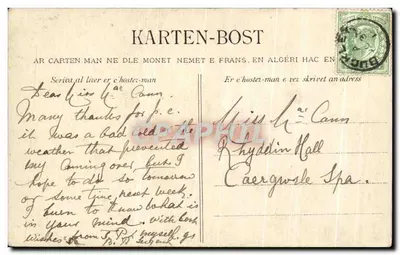 KARTEN-BOST
AR CARTEN MAN NE DLE MONET NEMET E FRANS, EN ALGÉRI HAC EN
Scrivit al lizer er c'hostez-man
Er c'hostez-man e vez skrivet an adress
BUCKLEY
Dear Miss Mac Cann.
Many thanks for p.c.
it was a bad cold & the
weather that prevented
my coming over, but I
hope to do so tomorrow
or some time next week.
I burn to know what is
in your mind. With best
wishes from & myself.
Miss Mac Cann
Rhyddin Hall
Caergwrle Spa.